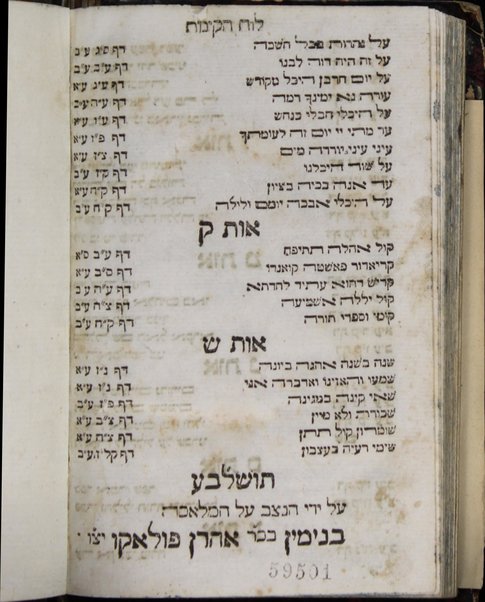 לוח הקינות
על נהרות בבל חשכה דף ס״ג ע״ב
על זה היה דוה לבנו דף ע״ב ע״ב
על יום חרבן היכל מקודש דף ע״ג ע״א
עורה נא ימינך רמה
על היכלי חבלי כנחש דף ע״ז ע״א
עד מתי יי יום זה לעומתך דף פ״ו ע״א
עיני עיני יורדה מים דף צ״ז ע״א
על שוד היכלנו דף ק״ז ע״ב
עדה אנה בכיה בציון דף ק״ח ע״א
על היכלי אבכה יומם ולילה דף ק״ח ע״ב
אות ק
קול אהלה תתיפח דף ע״ב ס״א
קריאדור פאשטה קואנדו דף ס״ב ע״א
קדיש דהוא עתיד לחדתא דף ע״ח ע״ב
קול יללה אשמיעה דף צ״ח ע״ב
קומי וספרי תורה דף ק״ח ע״ב
אות ש
שנה בשנה אהגה כיונה דף נ״ז ע״א
שמעו והאזינו ואדברה אני דף נ״ז ע״א
שאי קינה במגינה דף פ״ז ע״ב
שכורה ולא מיין דף צ״ב ע״א
שומרון קול תתן דף צ״ח ע״א
שימי רעיה בעצבון דף קל״ז ע״ב
תושלבע
על ידי הנצב על המלאכה
בנימין בכר אהרן פולאקו יצ״ו
59501